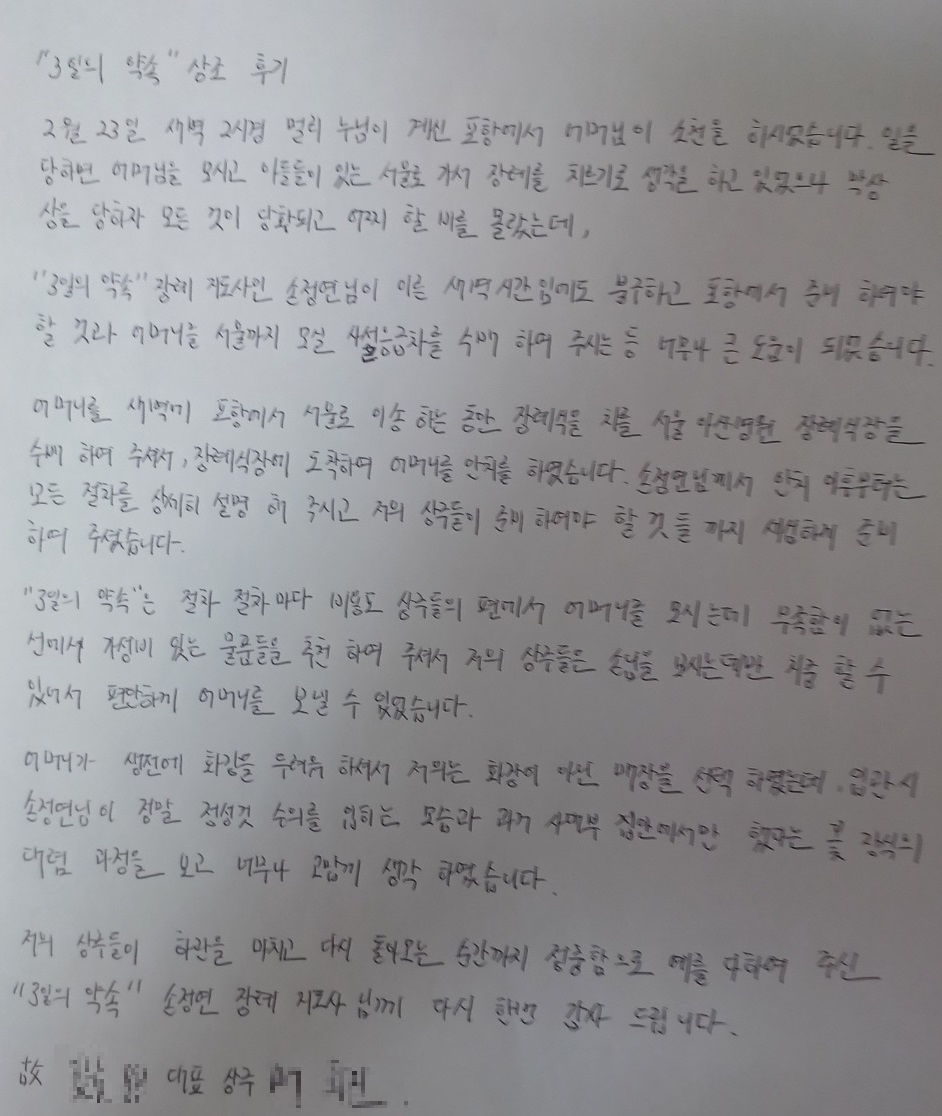 "3일의 약속" 상조 후기
2월 23일 새벽 2시경 멀리 누님이 계신 포항에서 어머님이 소천을 하시었습니다. 일을
당하면 어머님을 모시고 아들들이 있는 서울로 가서 장례를 치르기로 생각을 하고 있었으나 막상
상을 당하자 모든 것이 당황되고 어찌 할 바를 몰랐는데,
"3일의 약속" 장례 지도사인 손정연님이 이른 새벽시간 임에도 불구하고 포항에서 준비 하여야
할 것과 어머니를 서울까지 모실 사설응급차를 수배 하여 주시는 등 너무나 큰 도움이 되었습니다.
어머니를 새벽에 포항에서 서울로 이송 하는 동안 장례식을 치를 서울 아산병원 장례식장을
수배 하여 주셔서, 장례식장에 도착하여 어머니를 안치를 하였습니다. 손정연님께서 안치 이후부터는
모든 절차를 상세히 설명 해 주시고 저의 상주들이 준비 하여야 할 것 들 까지 세심하게 준비
하여 주셨습니다.
"3일의 약속"은 절차 절차마다 비용도 상주들의 편에서 어머니를 모시는데 부족함이 없는
선에서 가성비 있는 물품들을 추천 하여 주셔서 저의 상주들은 손님을 모시는데만 치중 할 수
있어서 편안하게 어머니를 보낼 수 있었습니다.
어머니가 생전에 화장을 두려워 하셔서 저의는 화장이 아닌 매장을 선택 하였는데, 입관시
손정연님이 정말 정성것 수의를 입히는 모습과 과거 사대부 집안에서만 했다는 꽃 장식의
대렴 과정을 보고 너무나 고맙게 생각 하였습니다.
저의 상주들이 하관을 마치고 다시 돌아오는 순간까지 정중함으로 예를 다하여 주신
"3일의 약속" 손정연 장례 지도사 님께 다시 한번 감사 드립니다.
故 대표 상주